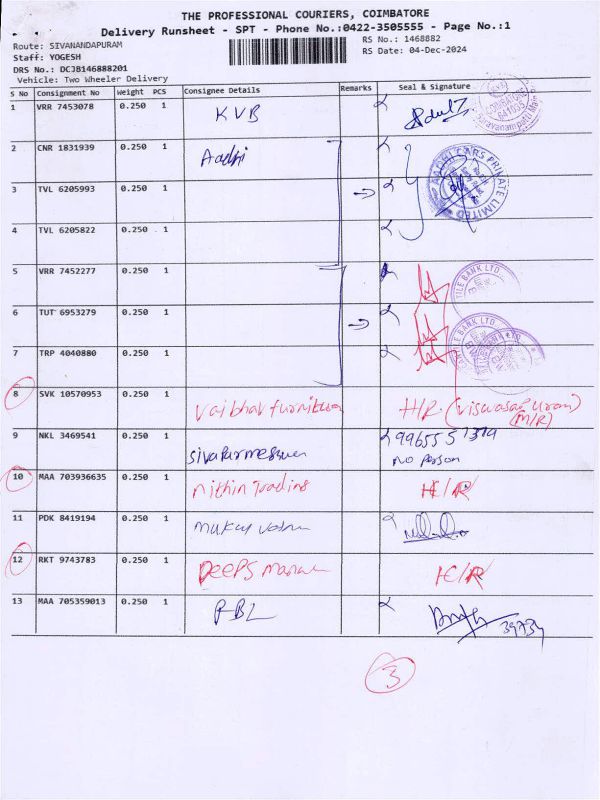 THE PROFESSIONAL COURIERS, COIMBATORE
Delivery Runsheet - SPT - Phone No.:0422-3505555 - Page No.:1
Route: SIVANANDAPURAM
RS No.: 1468882
Staff: YOGESH
RS Date: 04-Dec-2024
DRS No.: DCJB146888201
Vehicle: Two Wheeler Delivery
S No Consignment No Weight PCS Consignee Details Remarks Seal & Signature
1 VRR 7453078 0.250 1 KVB
2 CNR 1831939 0.250 1
AADHI CARS PRIVATE LIMITED
3 TVL 6205993 0.250 1
4 TVL 6205822 0.250 1
5 VRR 7452277 0.250 1
BANK LTD.
6 TUT 6953279 0.250 1
BANK LTD.
7 TRP 4040880 0.250 1
8 SVK 10570953 0.250 1 Vaibhav furniture H/R (Viswasapuram)
(M/R)
9 NKL 3469541 0.250 1
No Person
10 MAA 703936635 0.250 1 Nithin Trading H/R
11 PDK 8419194 0.250 1
12 RKT 9743783 0.250 1 H/R
13 MAA 705359013 0.250 1 RBL
39734
3